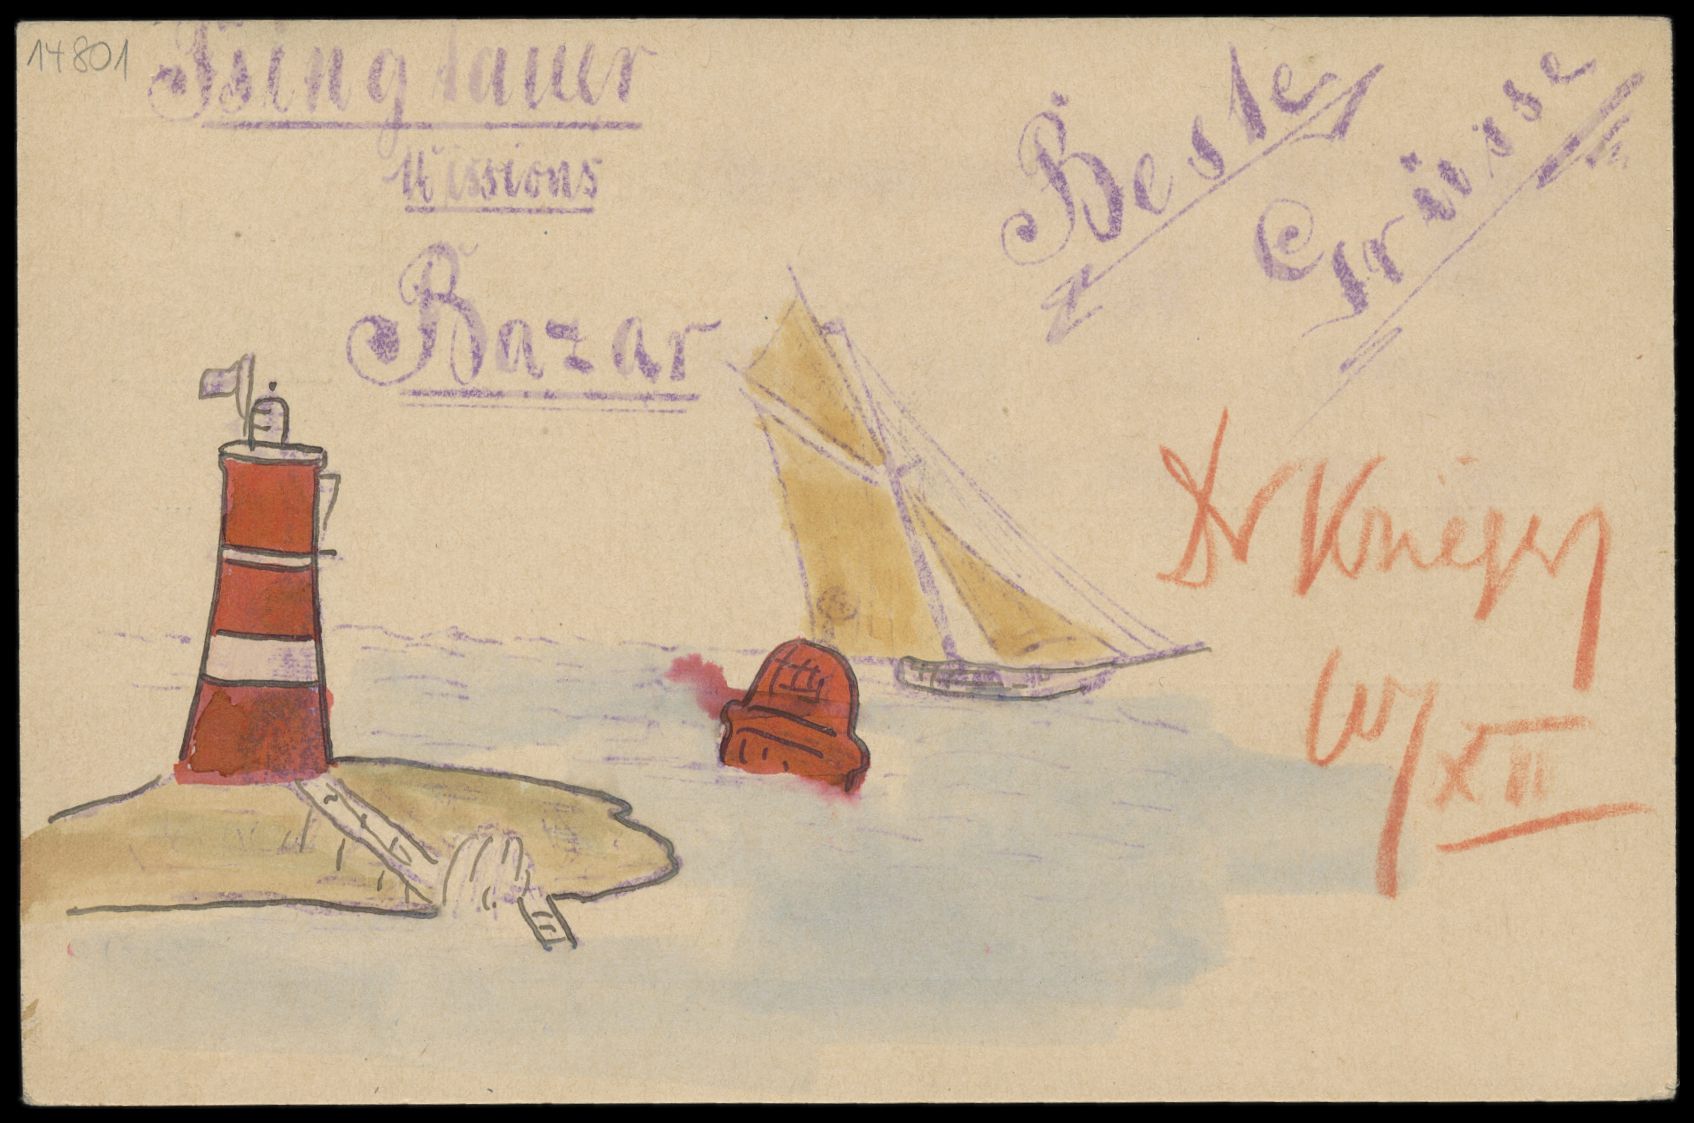 14801
Tsingtauer
Missions
Bazar
Beste
Grüsse
Dr Krieger
XII